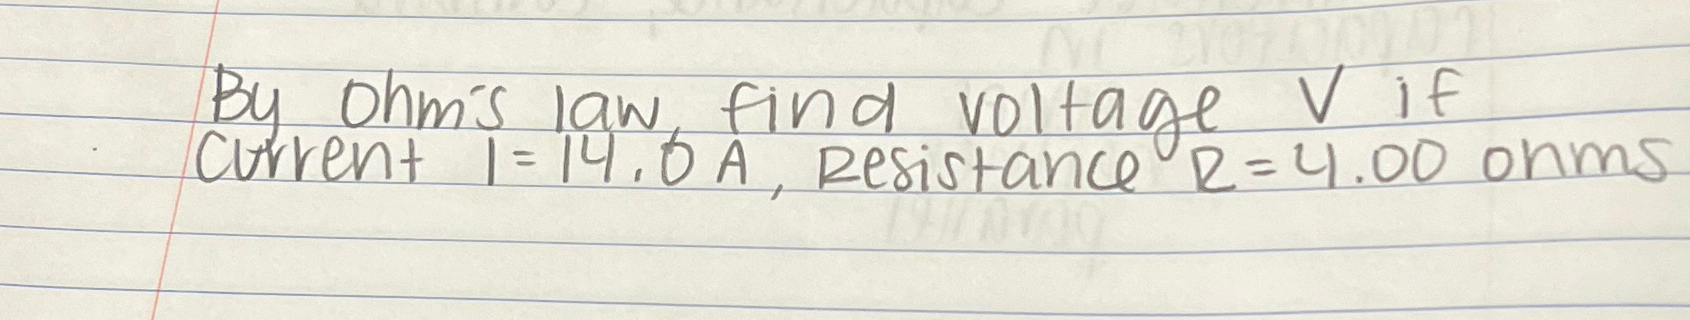 By Ohm's law, find voltage V if
Current I = 14.0 A, Resistance R = 4.00 ohms